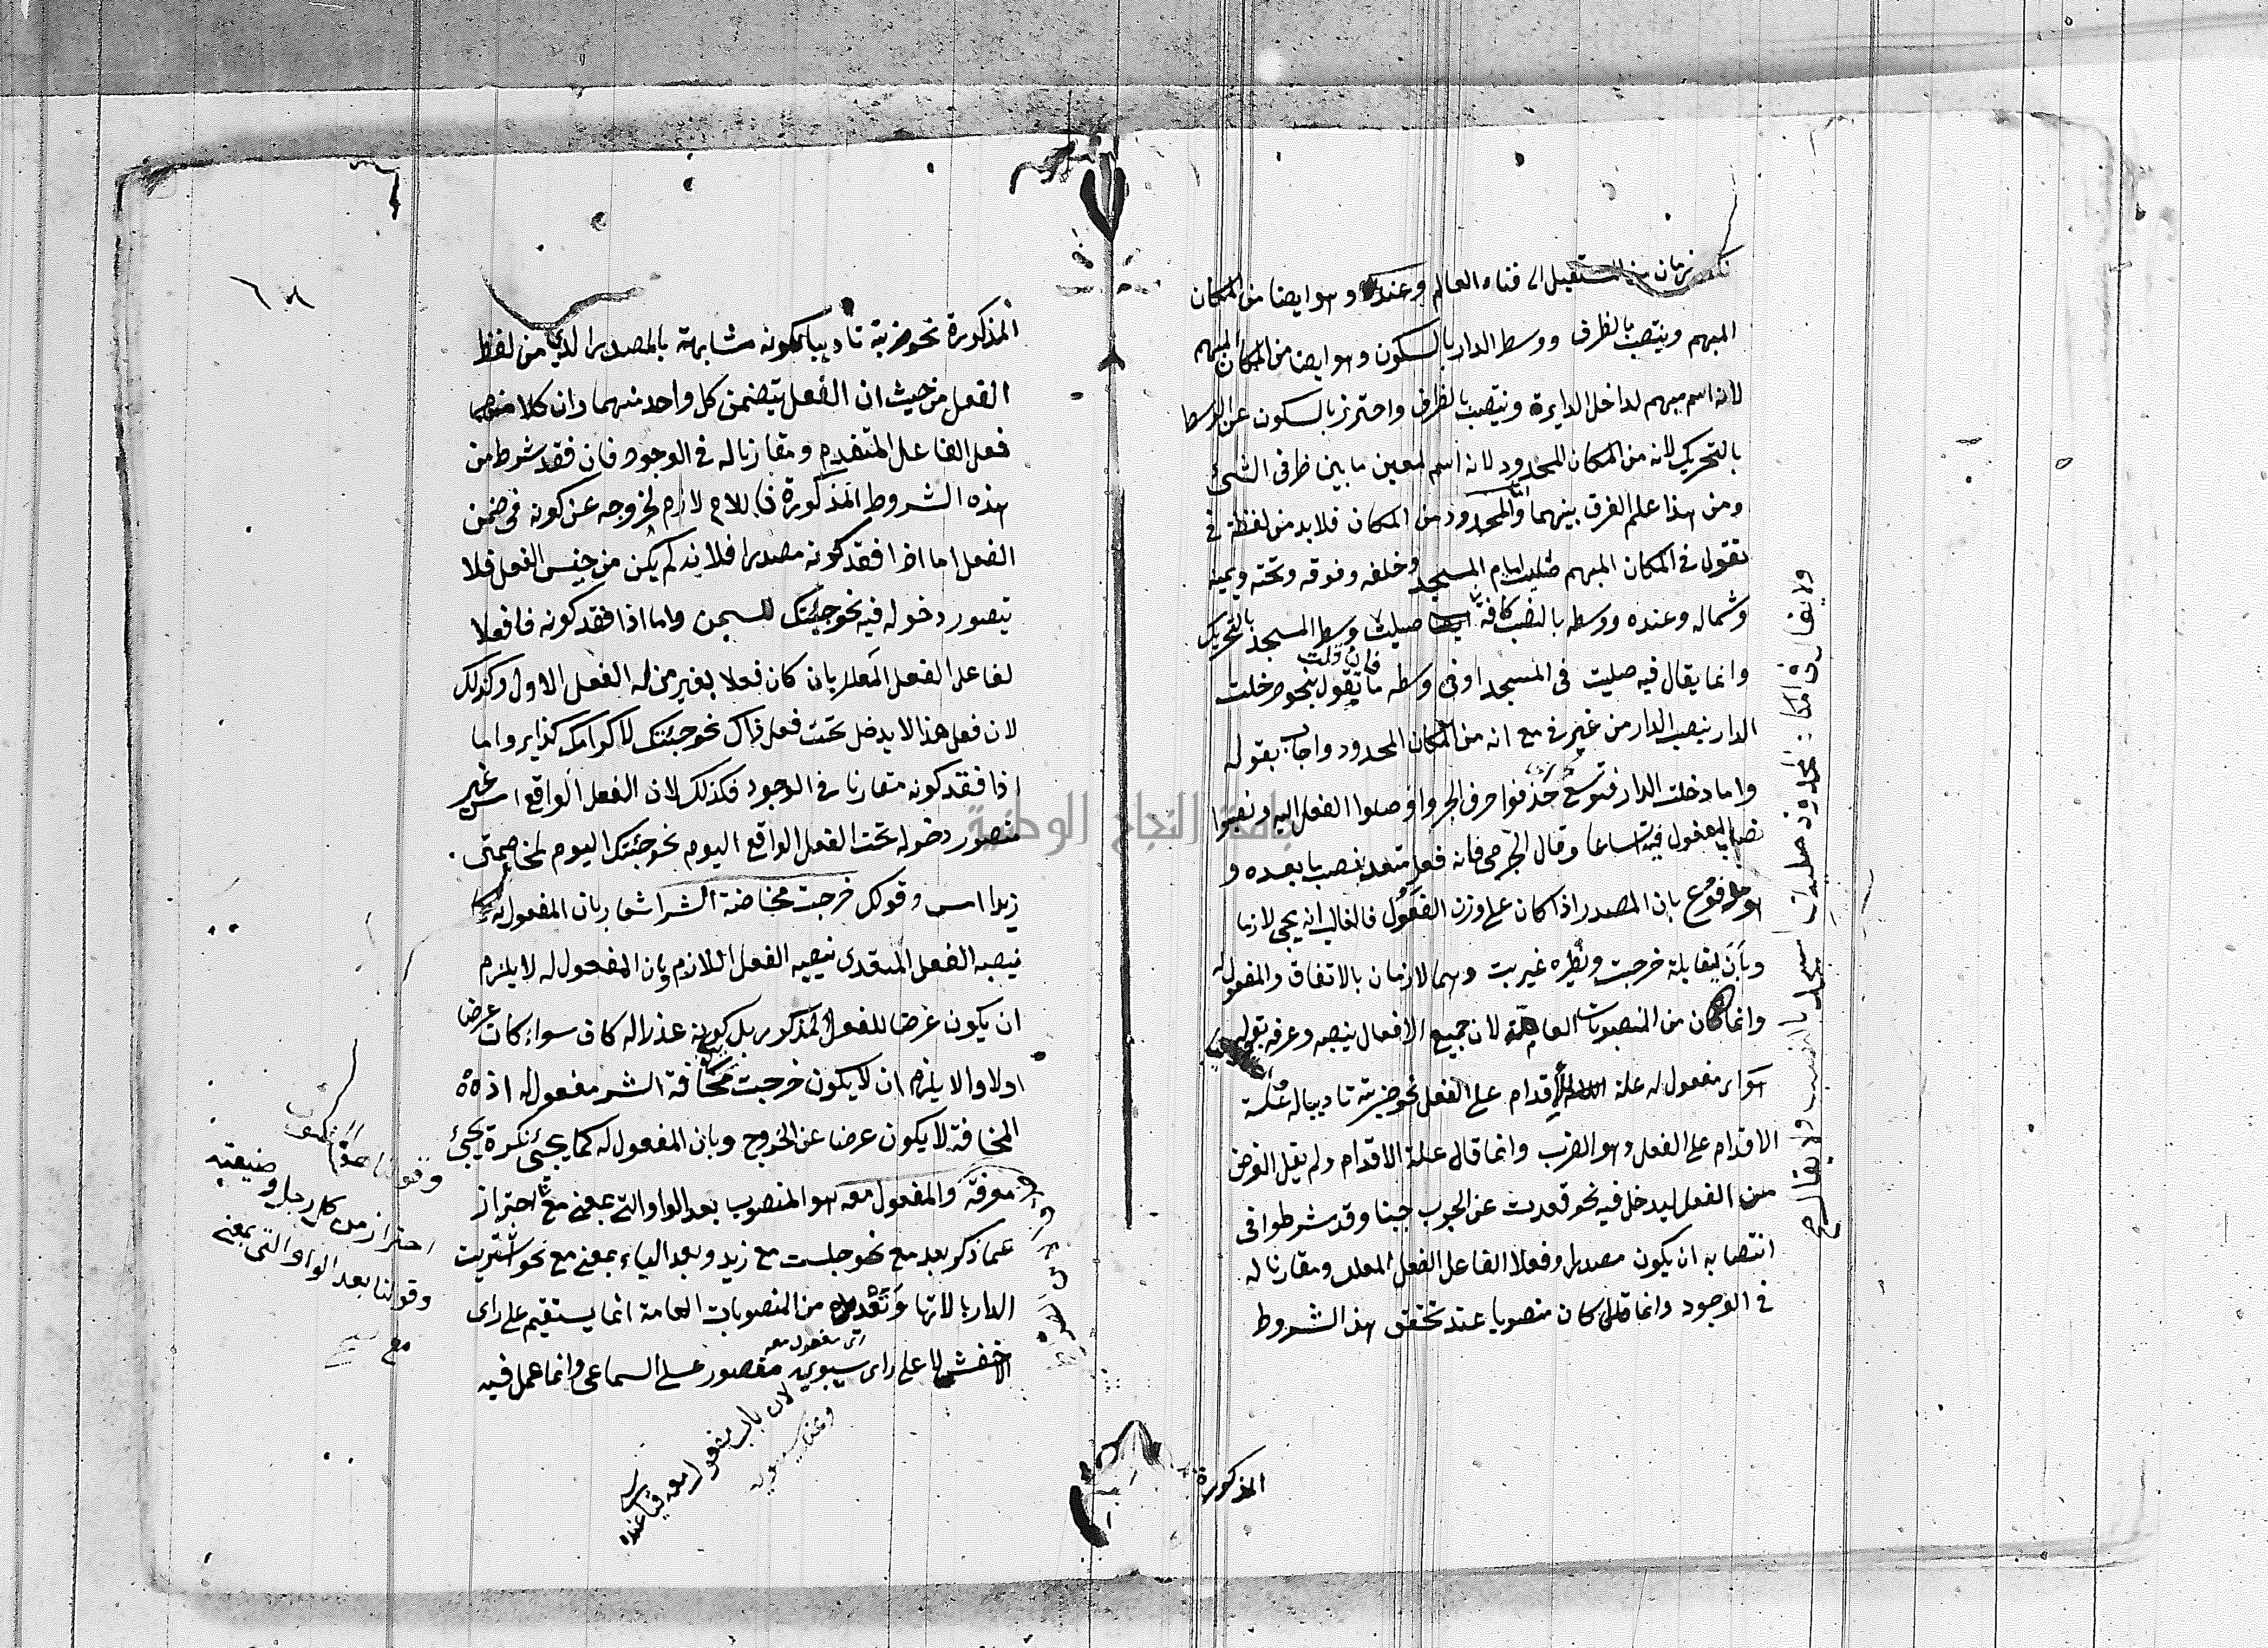 زمان من المستقبل الى فناء العالم وعنده وهو ايضا من المكان
المبهم وينتصب بالظرف ووسط الدار بالسكون وهو ايضا من المكان المبهم
لانه اسم مبهم لداخل الدايرة وينتصب بالظرف واحترز بالسكون عن الوسط
بالتحريك لانه من المكان المحدود لانه اسم لمعين ما بين طرفى الشئ
ومن هذا علم الفرق بينهما واما المحدود من المكان فلا بد من لفظة فى
تقول فى المكان المبهم صليت امام المسجد وخلفه وفوقه وتحته ويمينه
وشماله وعنده ووسطه بالنصب كافة لا صليت وسط المسجد بالتحريك
وانما يقال فيه صليت فى المسجد او فى وسطه فان قلت ما تقول بنحو دخلت
الدار بنصب الدار من غير فى مع انه من المكان المحدود واجاب بقوله
واما دخلت الدار فتوسع حذفوا حرف الجر واوصلوا الفعل اليه ونصبوا
نصب المفعول فيه اتساعا وقال الجرمى فانه فعل متعد نصب ما بعده و
هو مدفوع بان المصدر اذا كان على وزن الفعول فالغالب انه يجى لازما
وبان يقابله خرجت ونظيره غيرت وهما لازمان بالاتفاق والمفعول له
وانما كان من المنصوبات العامة لان جميع الافعال ينصبه وعرفه بقوله
هو اى مفعول له علة الاقدام على الفعل نحو ضربته تاديبا له علة
الاقدام على الفعل وهو الضرب وانما قال علة الاقدام ولم يقل الغرض
من الفعل ليدخل فيه نحو قعدت عن الحرب جبنا وقد شرطوا فى
انتصابه ان يكون مصدرا وفعلا لفاعل الفعل المعلل ومقارنا له
فى الوجود وانما كان منصوبا عند تحقق هذا الشروط
المذكورة
ولا يقال فى المكان المحدود صليت المسجد بالنصب ولا يقال
المذكورة نحو ضربته تاديبا لكونه مشابهة بالمصدر الذى من لفظ
الفعل من حيث ان الفعل يتضمن كل واحد منهما وان كلا منهما
فعل الفاعل المتقدم ومقارنا له فى الوجود فان فقد شرط من
هذه الشروط المذكورة فاللام لازم لخروجه عن كونه فى ضمن
الفعل اما اذا فقد كونه مصدرا فلانه لم يكن من جنس الفعل فلا
يتصور دخوله فيه نحو جئتك للسمن واما اذا فقد كونه فافعلا
لفاعل الفعل المعلل بان كان فعلا بغير من له الفعل الاول وكذلك
لان فعل هذا لا يدخل تحت فعل ذاك نحو جئتك لاكرامك زيدا واما
اذا فقد كونه مقارنا فى الوجود فكذلك لان الفعل الواقع امس غير
متصور دخوله تحت الفعل الواقع اليوم نحو جئتك اليوم لمخاصمتى
زيدا امس وقولك خرجت مخافة الشر اشار بان المفعول له كما
ينصبه الفعل المتعدى ينصبه الفعل اللازم وبان المفعول له لا يلزم
ان يكون غرضا للفعل المذكور بل كونه عذرا له كاف سواء كان غرضا
اولا والا يلزم ان لا يكون خرجت مخافة الشر مفعول له اذ
المخافة لا يكون غرضا عن الخروج وبان المفعول له كما يجئ نكرة يجئ
معرفة والمفعول معه هو المنصوب بعد الواو التى بمعنى مع احتراز
عما ذكر بعد مع نحو جلست مع زيد وبعد الباء بمعنى مع نحو اشتريت
الدار بالاتها من المنصوبات العامة انما يستقيم على راى
الاخفش لا على راى سيبويه مقصور على السماعى وانما عمل فيه
اى مفعول معه
لان باب مفعول معه قياس عنده
وعند سيبويه
احتراز من كل رجل وضيعته
وقولنا بعد الواو التى بمعنى
مع
جامعة النجاح الوطنية